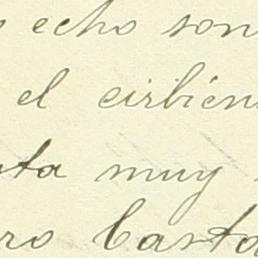 echo son
el cirbien
sta muy
ro Casta